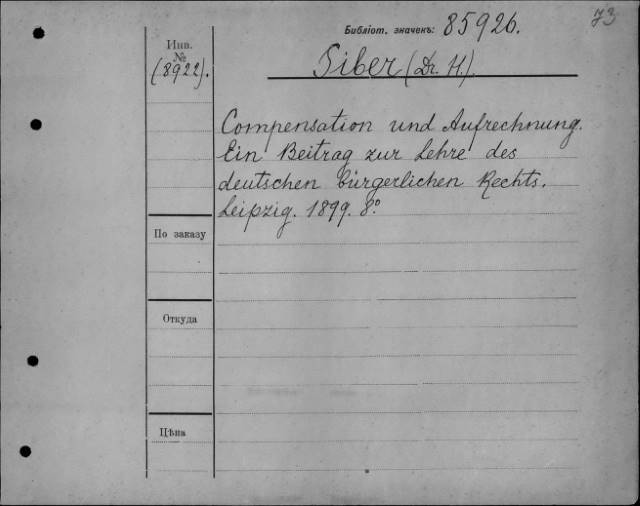 73
Библіот. значекъ: 85926.
Инв.
№
(8922).
Siber (Dr. H.)
Compensation und Aufrechnung.
Ein Beitrag zur Lehre des
deutschen bürgerlichen Rechts.
Leipzig. 1899. 8°.
По заказу
Откуда
Цѣна